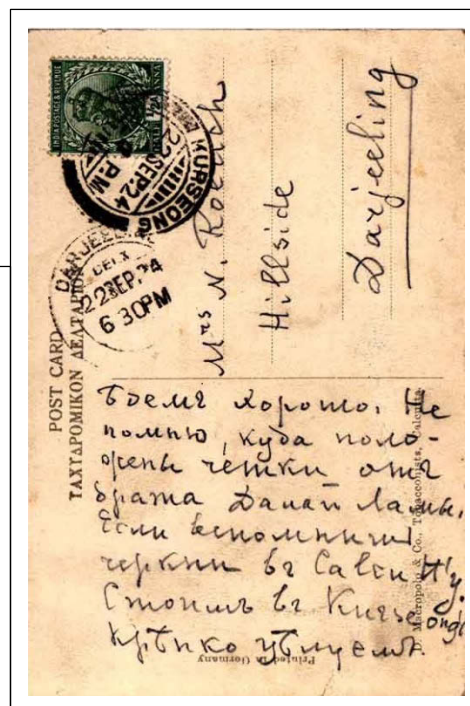 POST CARD
ΤΑΧΥΔΡΟΜΙΚΟΝ ΔΕΛΤΑΡΙΟΝ
INDIA POSTAGE & REVENUE
KURSEONG
22 SEP. 24
PM
DARJEELING
DELY.
22 SEP. 24
6 30 PM
Mrs N. Roerich
Hillside
Darjeeling
хорошо. Не
помню, куда поло-
жены четки отъ
брата Далай Ламы.
Если вспомнишь
черкни въ Calcutta
Стоимъ въ
крѣпко цѣлуемъ.
D. Macropolo & Co., Tobacconists, Calcutta.
Printed in Germany